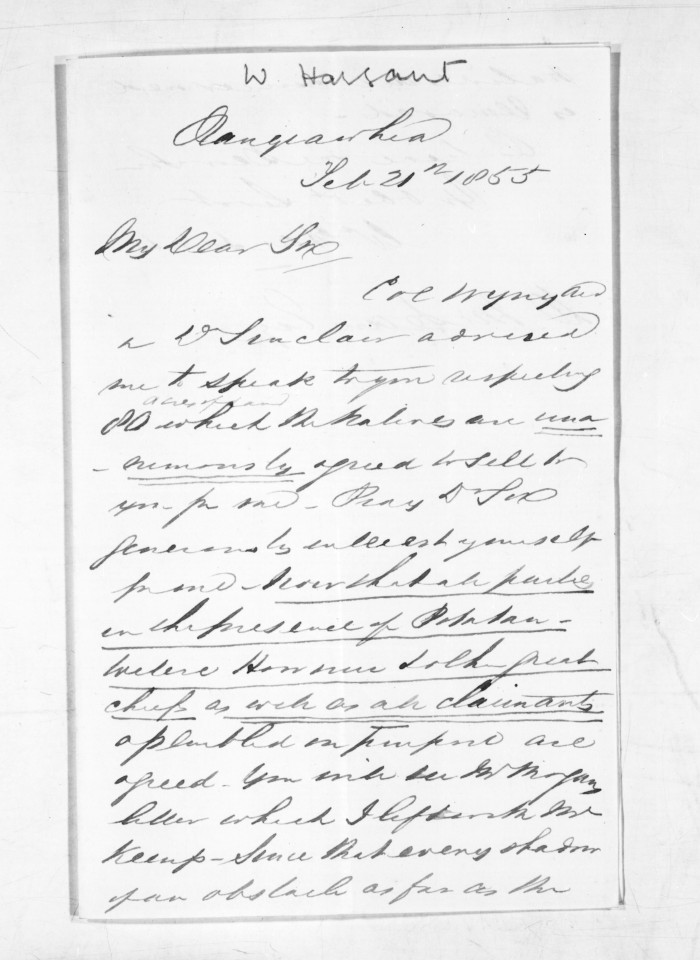 W Harsant
Rangiawhia
Feb 21st 1855
My Dear Sir
Col Wynyard
& Dr Sinclair advised
me to speak to you respecting
acres of land
80 which the Natives are una
-nimously agreed to sell to
you for me - Pray Dr Sir
generously interest yourself
for me - Now that all parties
in the presence of Potatau -
Wetere Hou & other great
chiefs as well as all claimants
assembled on purpose are
agreed - You will see Mr Morgans
letter which I left with Mr
Kemp - Since that every shadow
of an obstacle as far as the